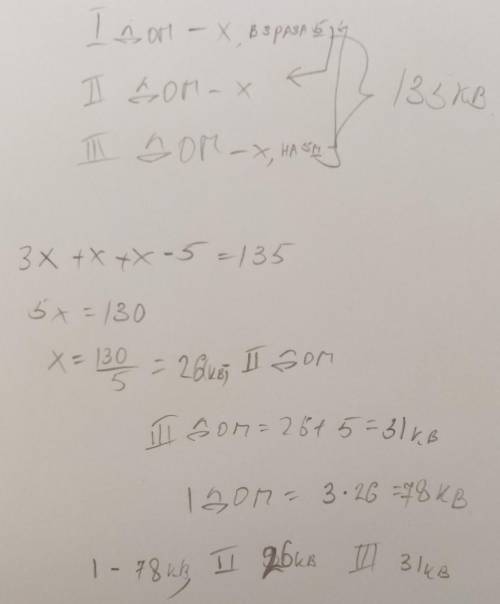 I ДОМ - х, В 3 РАЗА
II ДОМ - х
III ДОМ - х, НА
135 КВ.
3х + х + х - 5 = 135
5х = 130
х = 130/5 = 26кв; II ДОМ
III ДОМ = 26 + 5 = 31кв
1 ДОМ = 3 · 26 = 78 КВ
1 - 78кв, II 26кв III 31кв